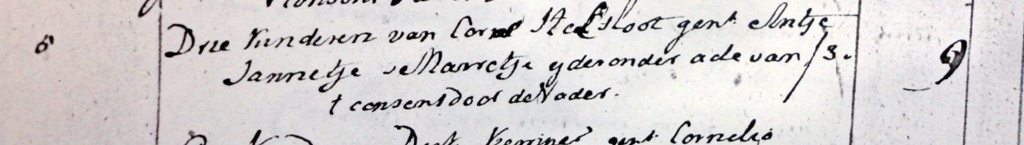 6 Drie Kinderen van Corn.s Helsloot gent. Antje
Jannetje & Marretje yder onder acte van /3. 9
t consens door de Vader.
Dirk gent. Cornelis